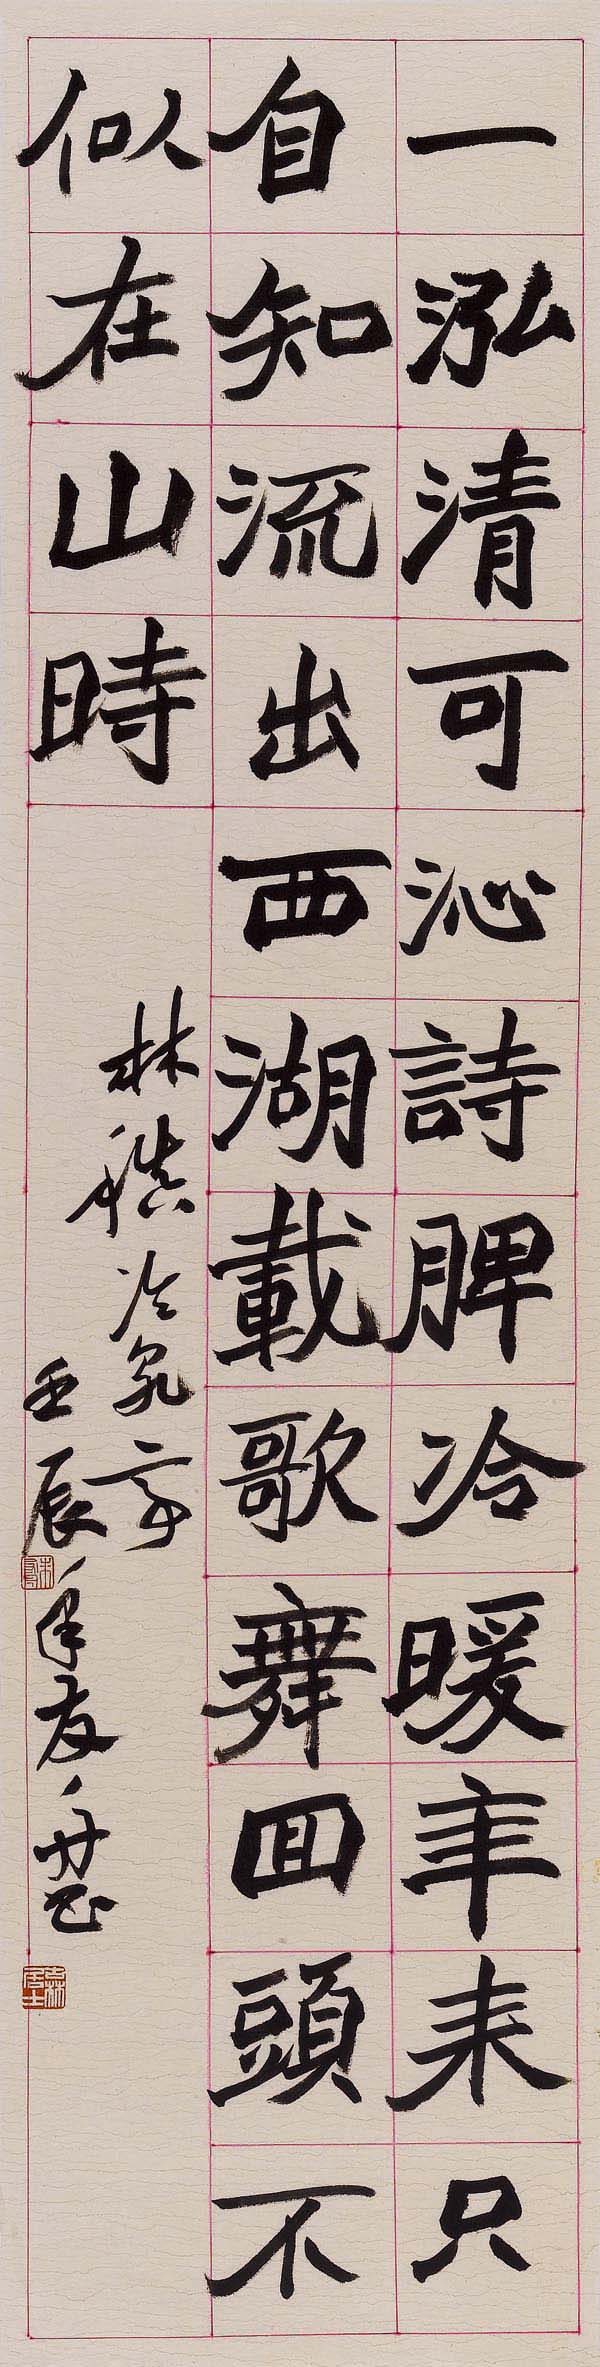 一泓清可沁詩脾冷暖年来只
自知流出西湖載歌舞回頭不
似在山時
林稹冷泉亭
壬辰年友丹書